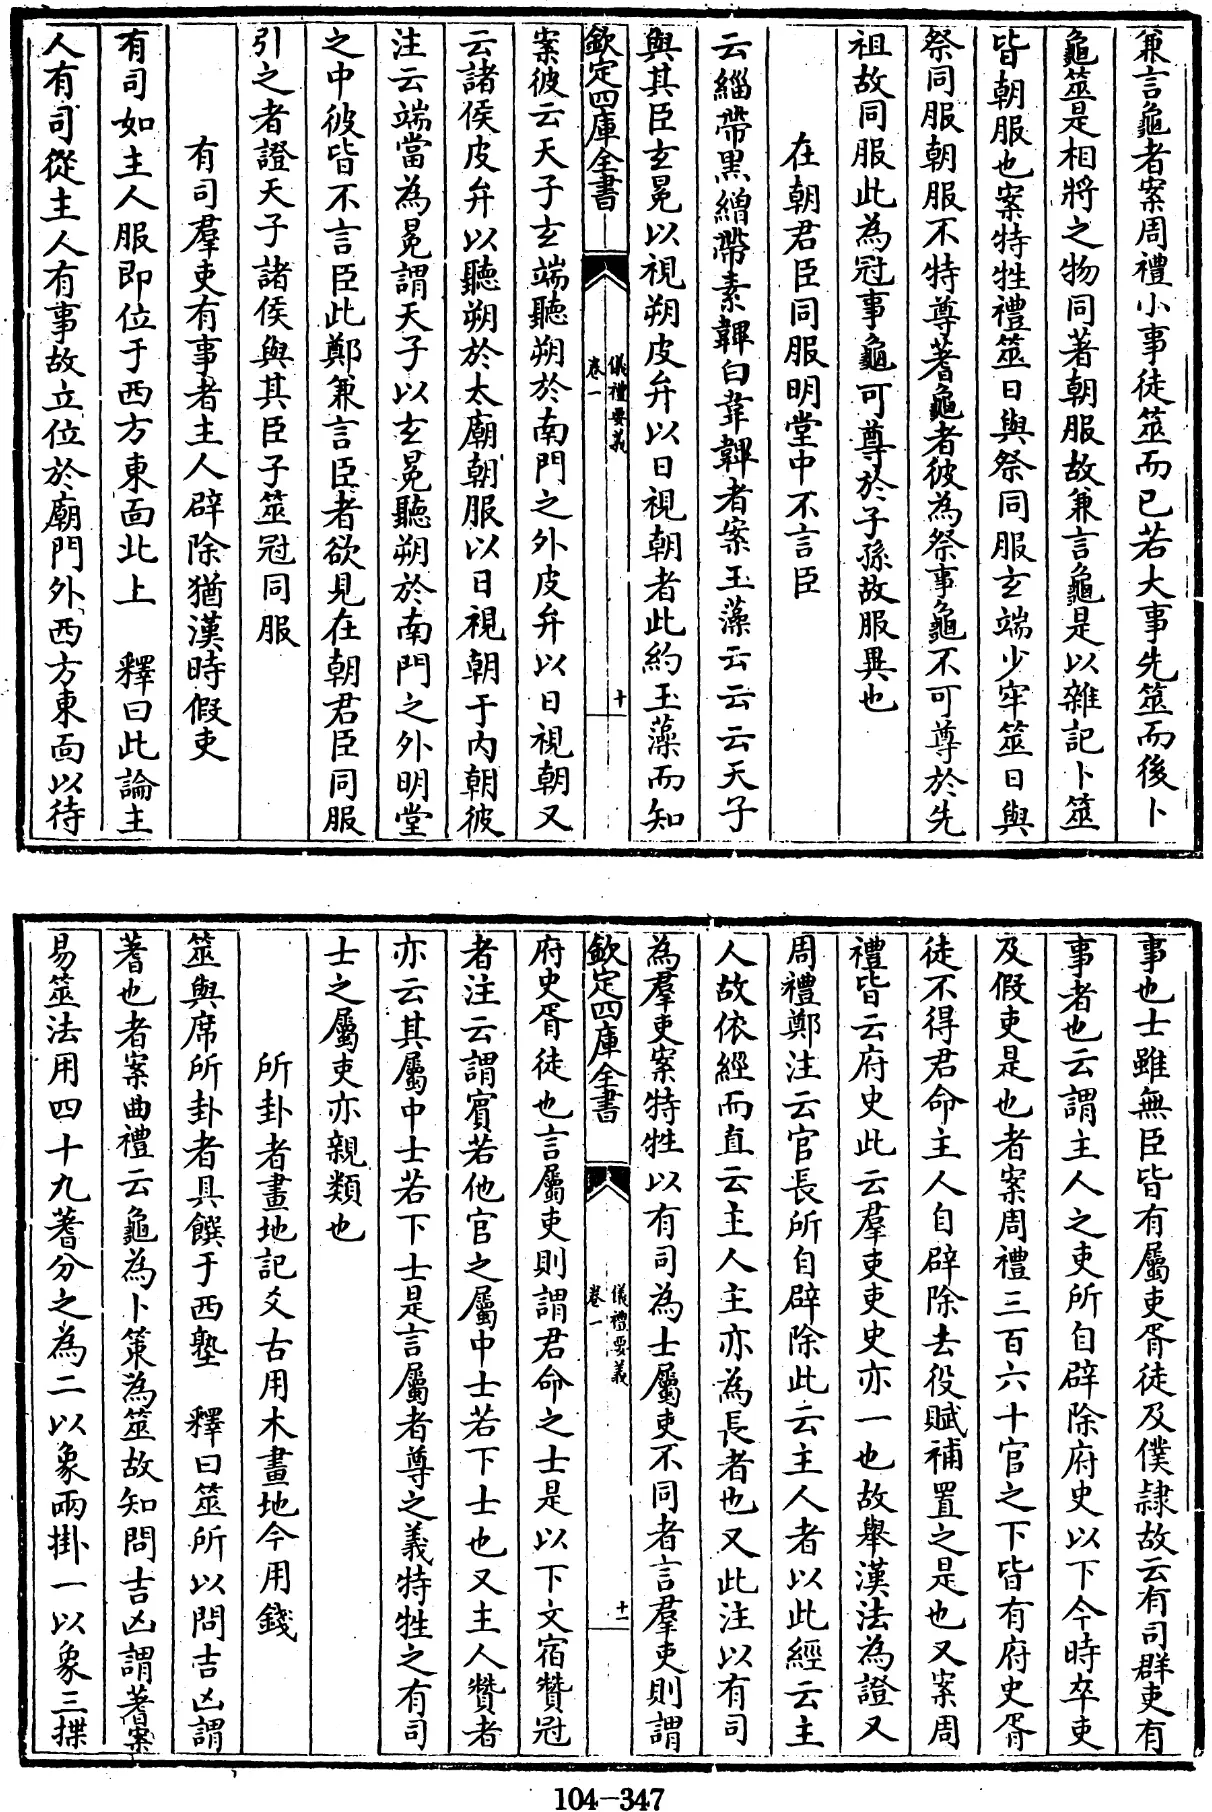 兼言龜者案周禮小事徒筮而已若大事先筮而後卜
龜筮是相將之物同著朝服故兼言龜是以雜記卜筮
皆朝服也案特牲禮筮日與祭同服玄端少牢筮日與
祭同服朝服不特尊蓍龜者彼為祭事龜不可尊於先
祖故同服此為冠事龜可尊於子孫故服異也
在朝君臣同服明堂中不言臣
云緇帶黑繒帶素韠白韋韠者案玉藻云云云天子
與其臣玄冕以視朔皮弁以日視朝者此約玉藻而知
欽定四庫全書
儀禮要義
卷一
十
案彼云天子玄端聽朔於南門之外皮弁以日視朝又
云諸侯皮弁以聽朔於太廟朝服以日視朝于內朝彼
注云端當為冕謂天子以玄冕聽朔於南門之外明堂
之中彼皆不言臣此鄭兼言臣者欲見在朝君臣同服
引之者證天子諸侯與其臣子筮冠同服
有司羣吏有事者主人辟除猶漢時假吏
有司如主人服即位于西方東面北上 釋曰此論主
人有司從主人有事故立位於廟門外西方東面以待
事也士雖無臣皆有屬吏胥徒及僕隷故云有司群吏有
事者也云謂主人之吏所自辟除府史以下今時卒吏
及假吏是也者案周禮三百六十官之下皆有府史胥
徒不得君命主人自辟除去役賦補置之是也又案周
禮皆云府史此云羣吏吏史亦一也故舉漢法為證又
周禮鄭注云官長所自辟除此云主人者以此經云主
人故依經而直云主人主亦為長者也又此注以有司
為羣吏案特牲以有司為士屬吏不同者言羣吏則謂
欽定四庫全書
儀禮要義
卷一
十一
府史胥徒也言屬吏則謂君命之士是以下文宿贊冠
者注云謂賓若他官之屬中士若下士也又主人贊者
亦云其屬中士若下士是言屬者尊之義特牲之有司
士之屬吏亦親類也
所卦者畫地記爻古用木畫地今用錢
筮與席所卦者具饌于西塾 釋曰筮所以問吉凶謂
蓍也者案曲禮云龜為卜策為筮故知問吉凶謂蓍案
易筮法用四十九蓍分之為二以象兩掛一以象三揲
104-347